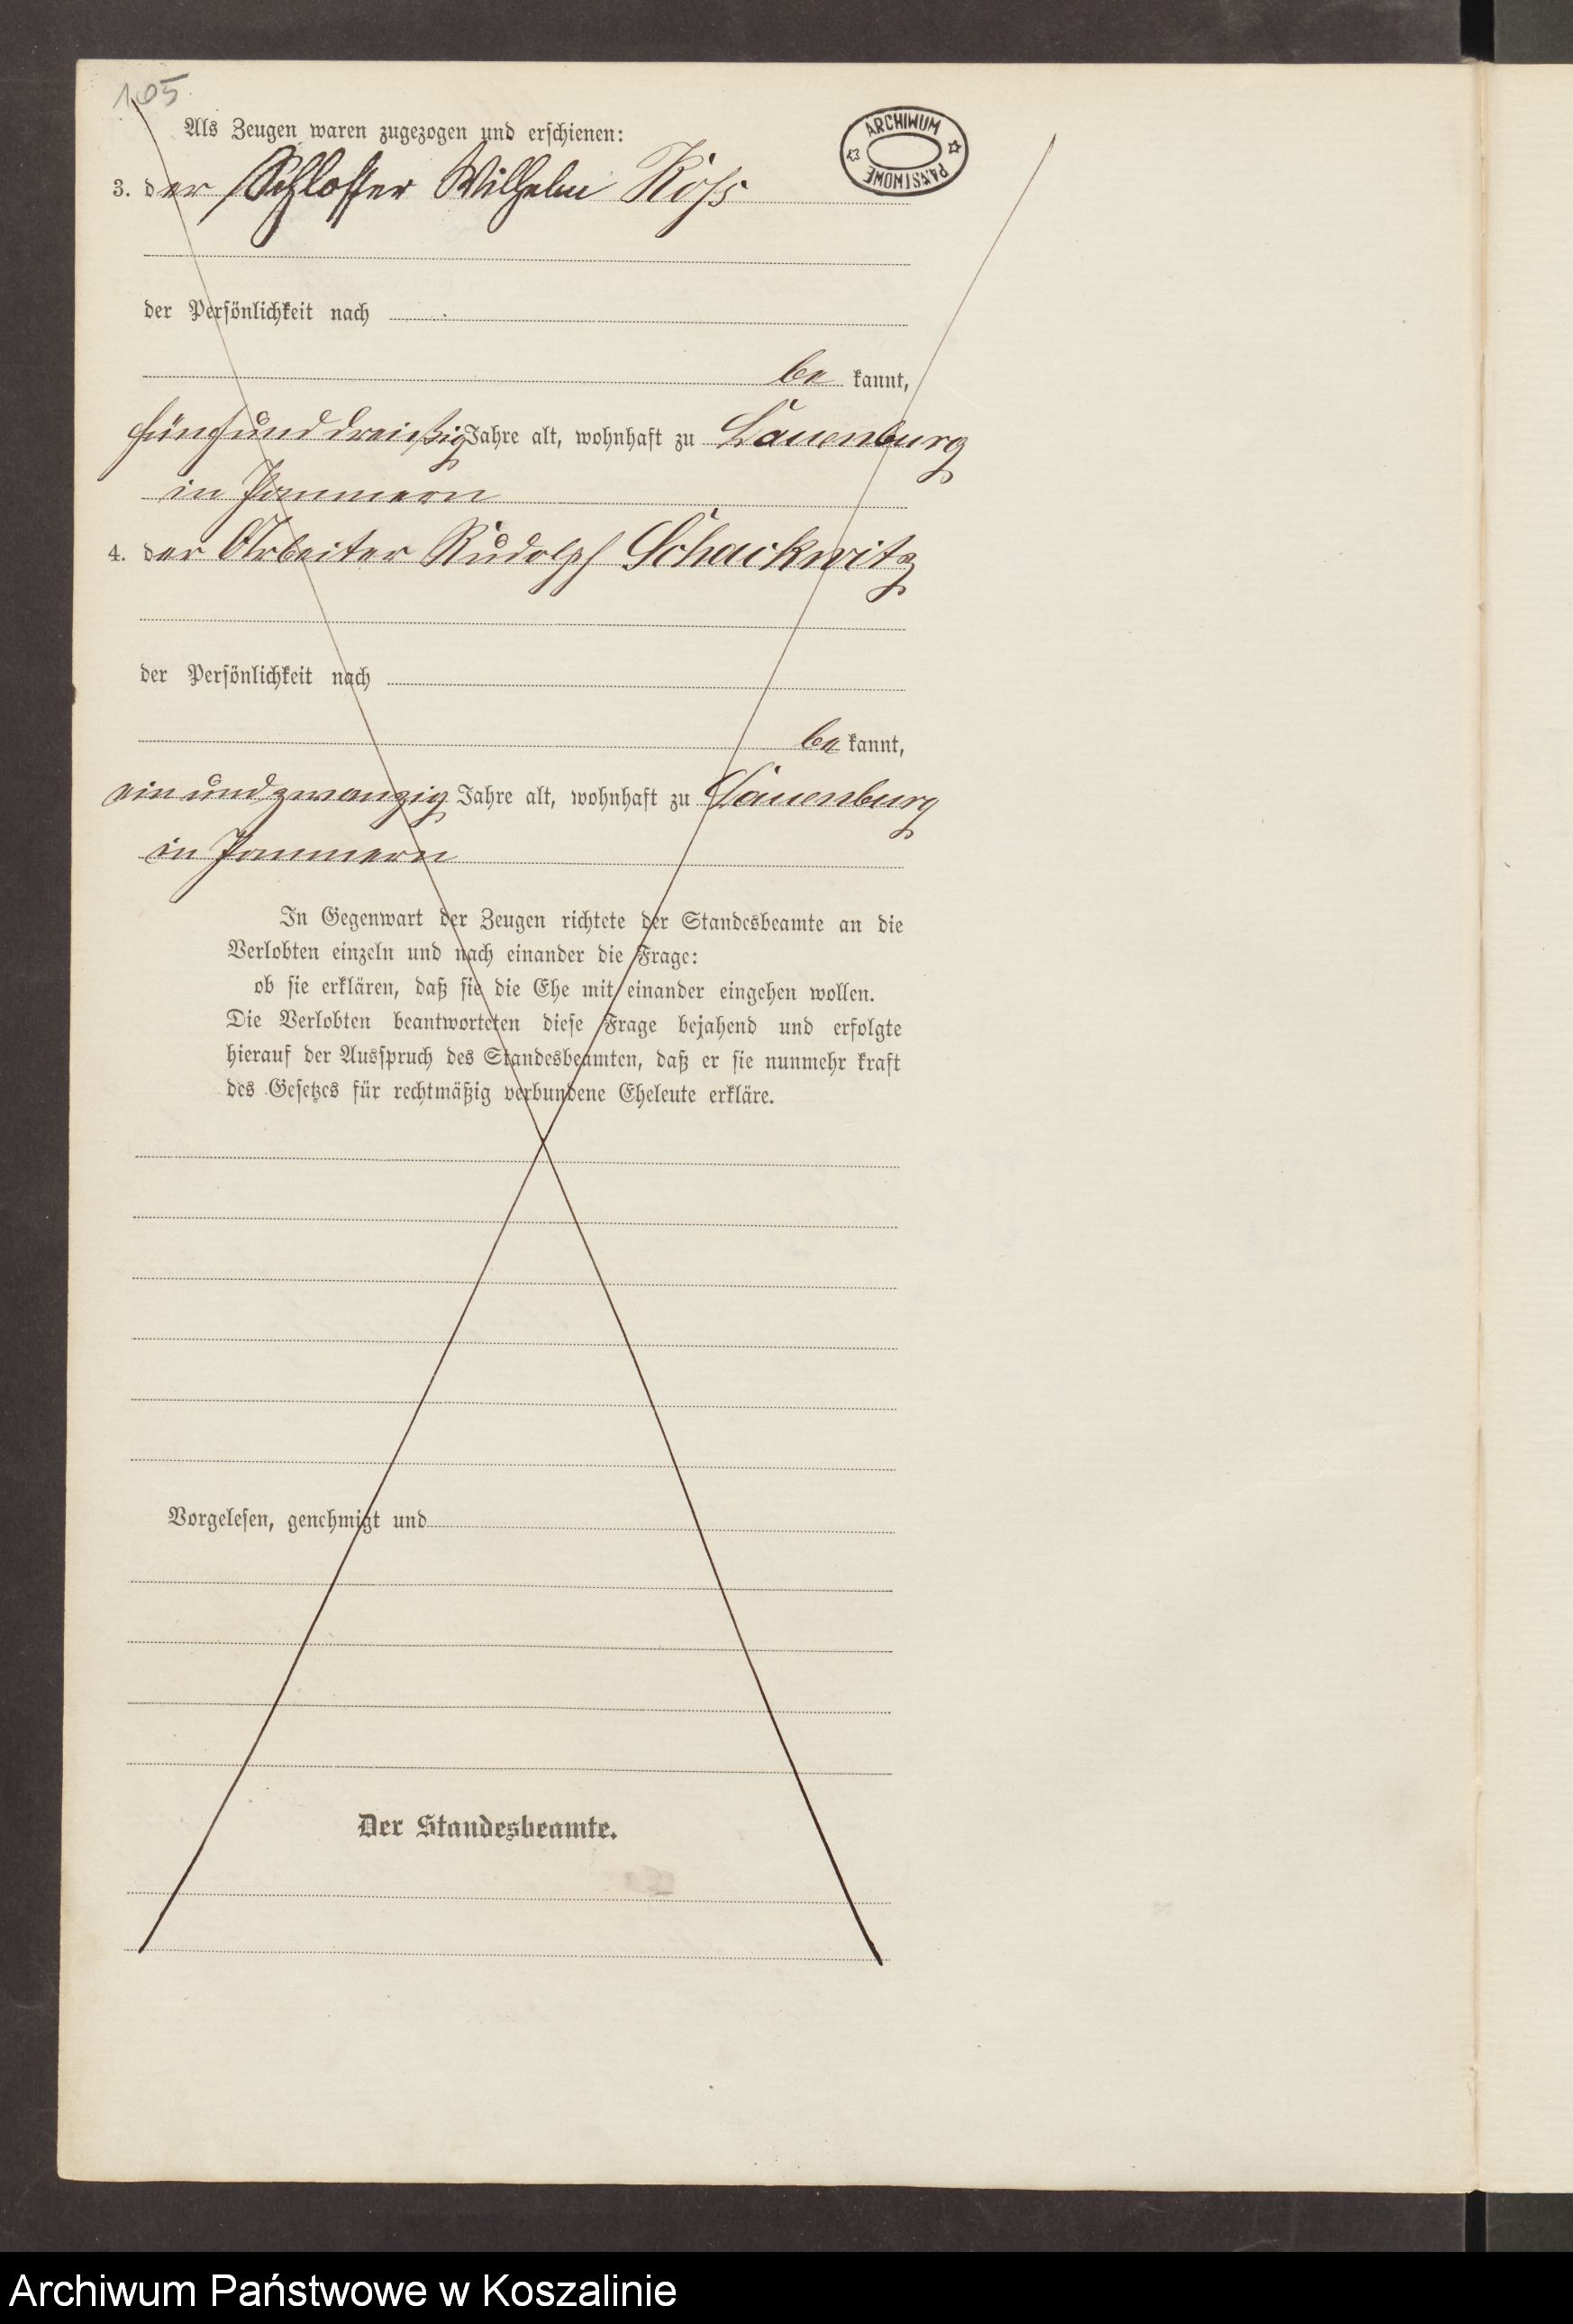 105
Als Zeugen waren zugezogen und erschienen:
ARCHIWUM PAŃSTWOWE
3. der Schlosser Wilhelm
der Persönlichkeit nach
be kannt,
fünfunddreißig Jahre alt, wohnhaft zu Lauenburg
in Pommern
4. der Arbeiter Rudolph Schackwitz
der Persönlichkeit nach
be kannt,
einundzwanzig Jahre alt, wohnhaft zu Lauenburg
in Pommern
In Gegenwart der Zeugen richtete der Standesbeamte an die
Verlobten einzeln und nach einander die Frage:
ob sie erklären, daß sie die Ehe mit einander eingehen wollen.
Die Verlobten beantworteten diese Frage bejahend und erfolgte
hierauf der Ausspruch des Standesbeamten, daß er sie nunmehr kraft
des Gesetzes für rechtmäßig verbundene Eheleute erkläre.
Vorgelesen, genehmigt und
Der Standesbeamte.
Archiwum Państwowe w Koszalinie